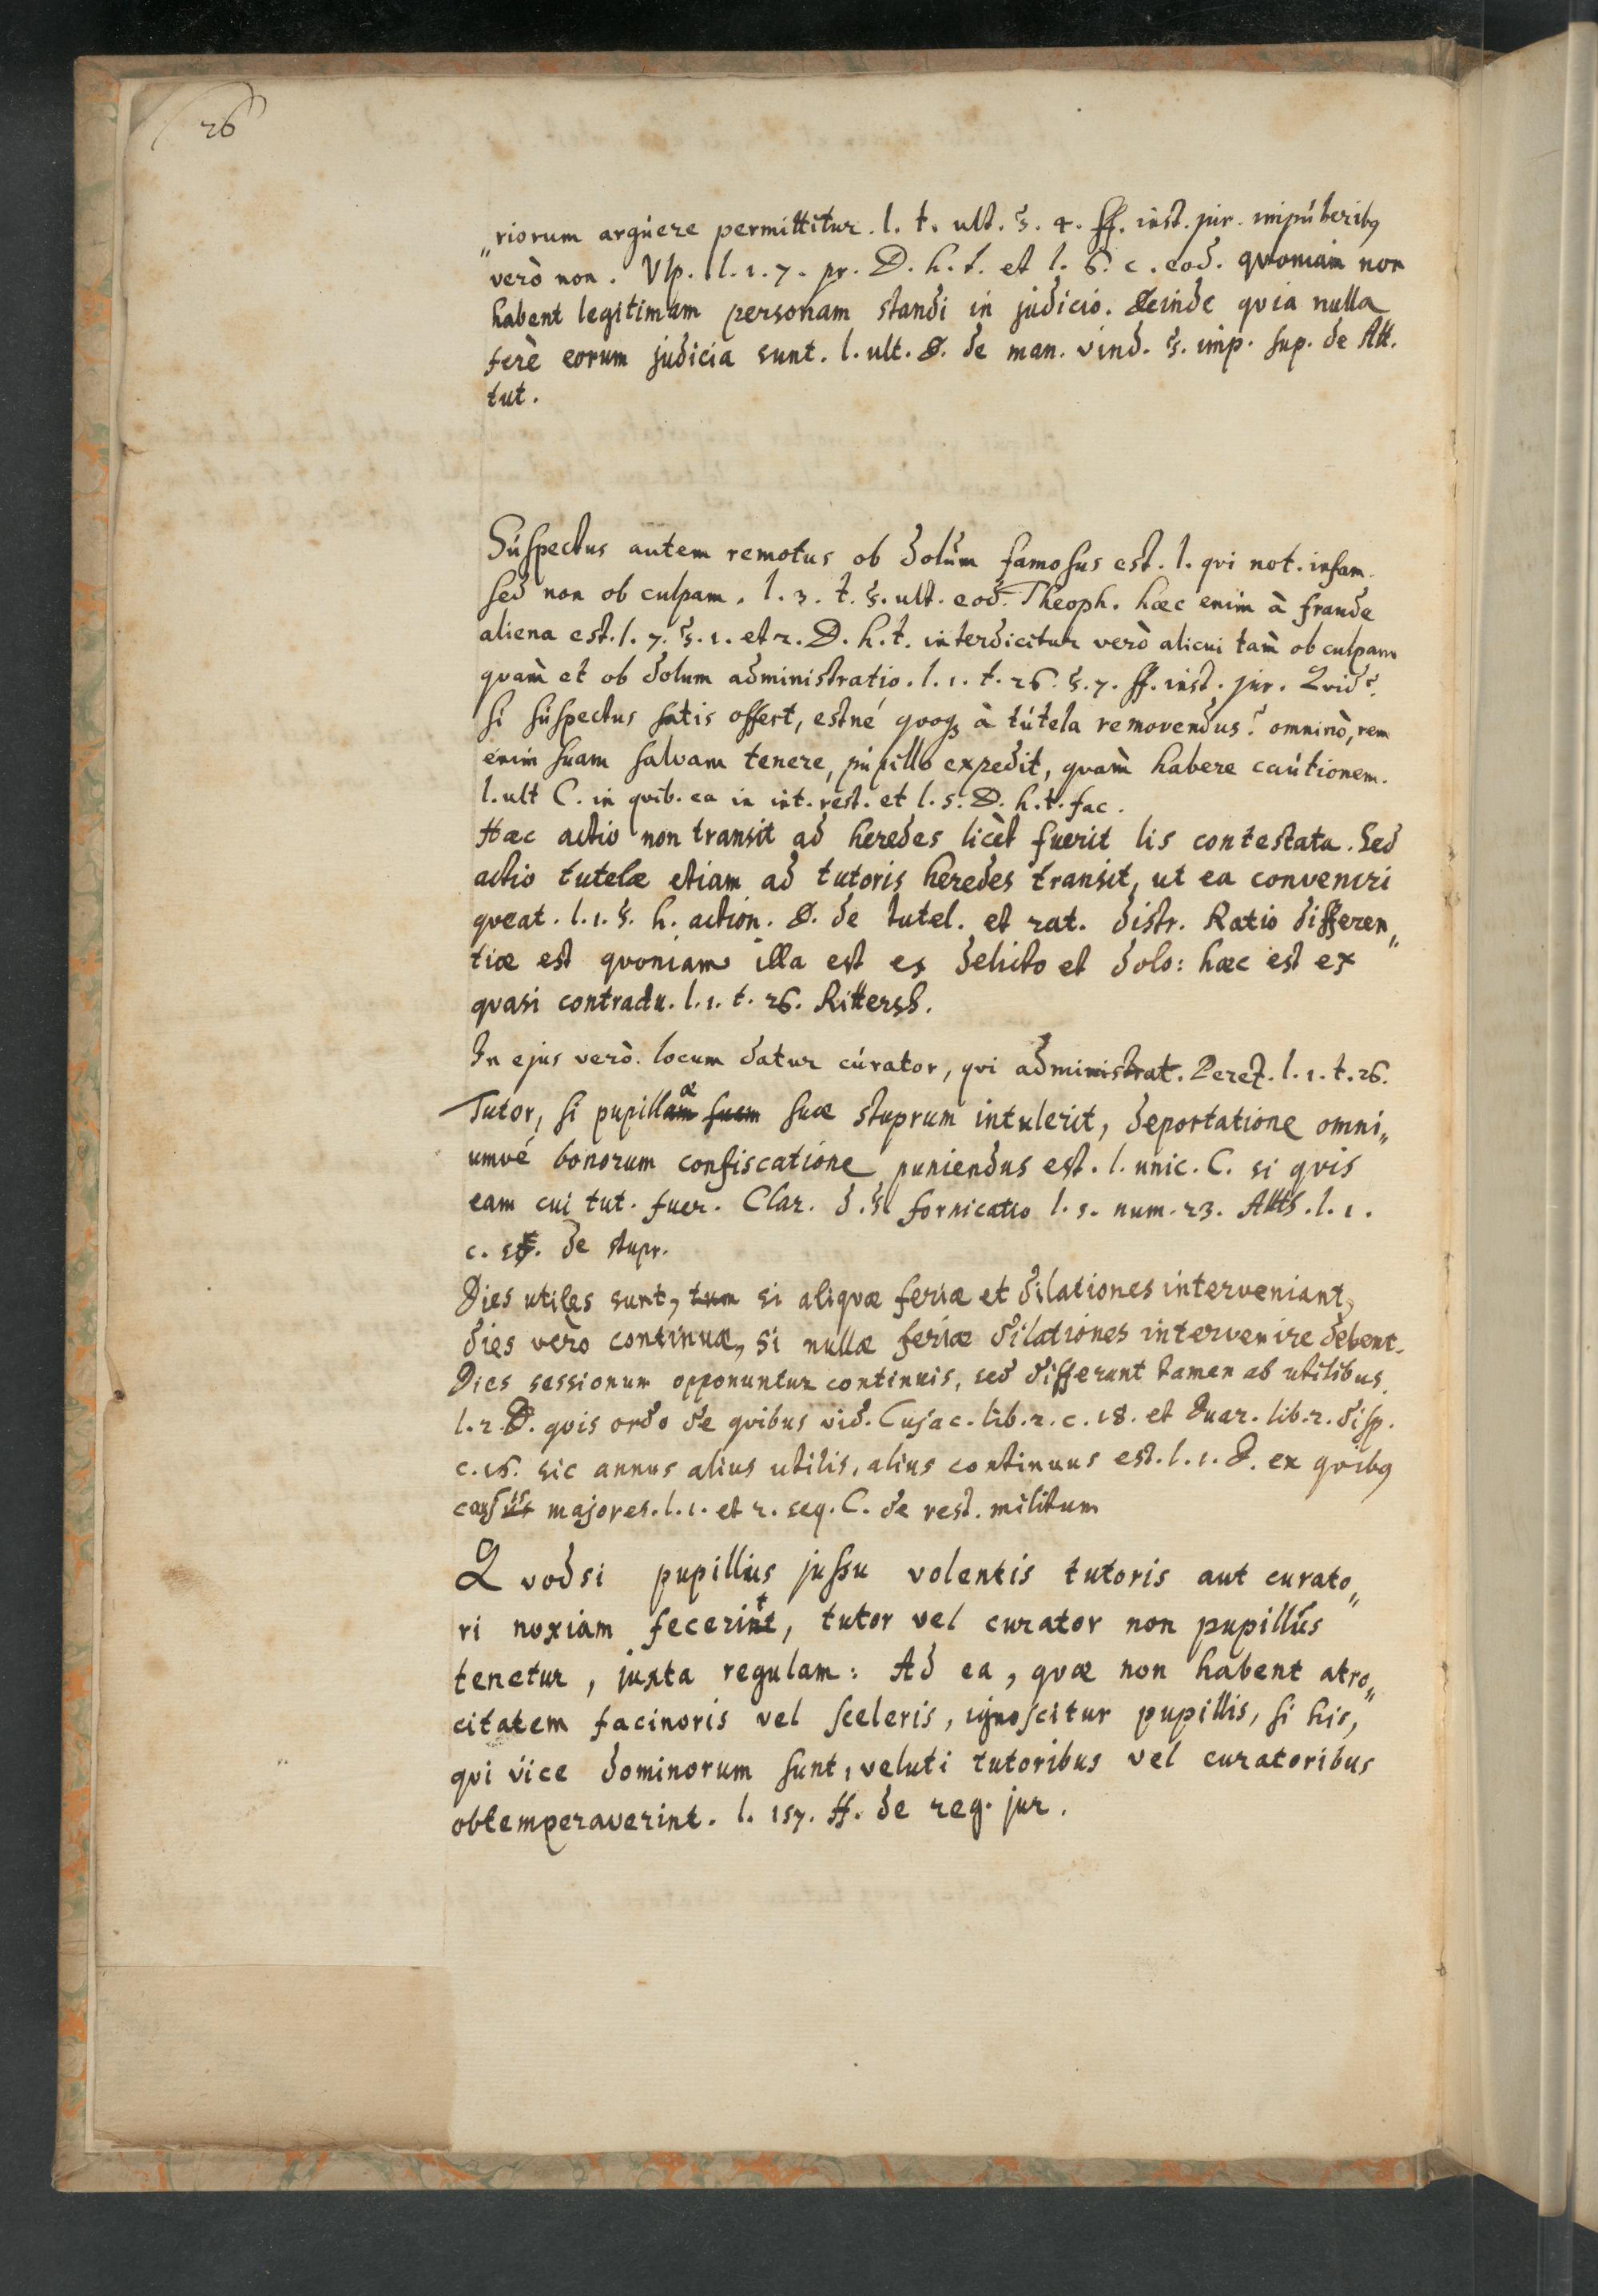 26
„riorum argúere permittitur. l. t. ult. §. 4. ff. inst. jur. impúberibq
verò non. Vlp. l. 1. 7. pr. D. h. t. et l. 6. c. eod. qvoniam non
habent legitimam personam standi in judicio. Deinde qvia nulla
ferè eorum judicia sunt. l. ult. D. de man. vind. §. imp. sup. de Att.
tut.
Súspectus autem remotus ob dolúm famosus est. l. qvi not. infam.
sed non ob culpam. l. 3. t. §. ult. eod. Theoph. hæc enim à fraude
aliena est. l. 7. §. 1. et 2. D. h. t. interdicitur verò alicui tàm ob culpam
qvàm et ob dolum administratio. l. 1. t. 26. §. 7. ff. inst. jur. Qvid?
si súspectus satis offert, estné qvoqȝ à tútela removendus? omninò, rem
enim suam salvam tenere, púpillo expedit, qvàm habere caútionem.
l. ult C. in qvib. ca in int. rest. et l. 5. D. h. t. fac.
Hæc actio non transit ad heredes licèt fuerit lis contestata. Sed
actio tutelæ etiam ad tutoris heredes transit, ut ea conveniri
qveat. l. 1. §. h. action. D. de tutel. et rat. distr. Ratio differen„
tiæ est qvoniam illa est ex delicto et dolo: hæc est ex
qvasi contractu. l. 1. t. 26. Rittersh.
In ejus verò locum datur cúrator, qvi administrat. Perez. l. 1. t. 26.
Tutor, si pupillam æ suam suæ stuprum intulerit, deportatione omni„
umvé bonorum confiscatione puniendus est. l. unic. C. si qvis
eam cui tut. fuer. Clar. d. §. fornicatio l. 5. num. 23. Atts. l. 1.
c. de stupr.
Dies utiles sunt, tum si aliqvæ feriæ et dilationes interveniant,
dies vero continuæ, si nullæ feriæ dilationes intervenire debent.
Dies sessionum opponuntur continuis, sed differunt tamen ab utilibus.
l. 2 D. qvis ordo de qvibus vid. Cujac. lib. 2. c. 18. et Duar. lib. 2. disp.
c. 16. sic annus alius utilis, alius continuus est. l. 1. D. ex qvibq
caus majores. l. 1. et 2. seq. C. de rest. militum
Qvodsi pupillus jussu volentis tutoris aut curato„
ri noxiam fecerint t, tutor vel curator non pupillús
tenetur, juxta regulam: Ad ea, qvæ non habent atro„
citatem facinoris vel sceleris, ignoscitur pupillis, si his,
qvi vice dominorum sunt, veluti tutoribus vel curatoribus
obtemperaverint. l. 157. ff. de reg. jur.